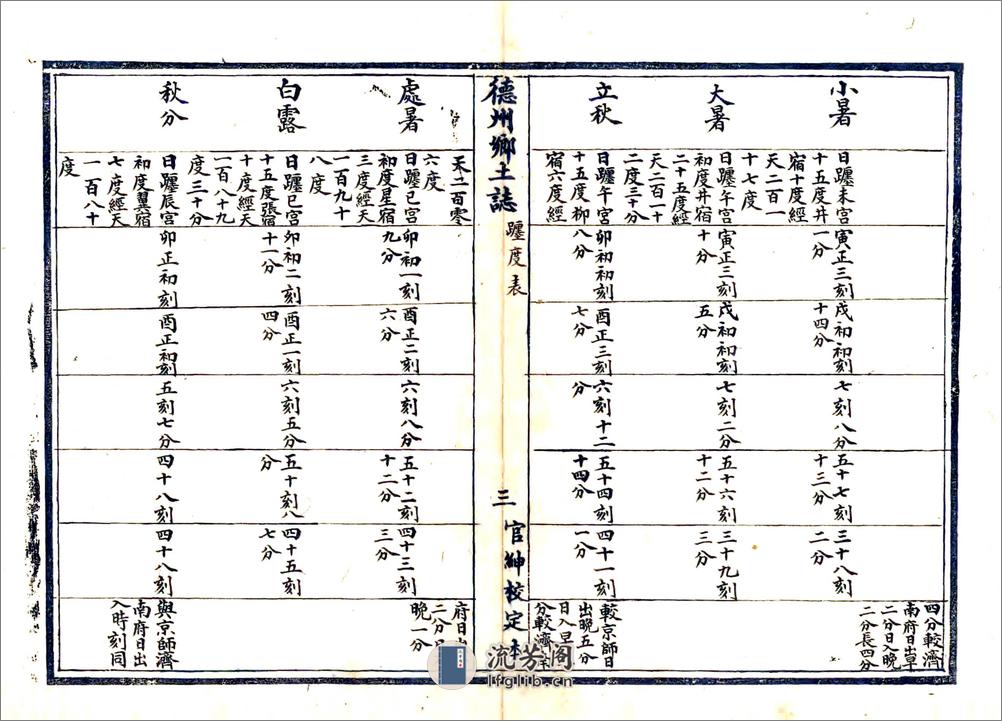 小暑
日躔未宫
十五度井
宿十度經
天二百一
十七度
寅正三刻
一分
戌初初刻
十四分
七刻八分
五十七刻
十三分
三十八刻
二分
四分較濟
南府日出早
二分日入晚
二分長四分
大暑
日躔午宫
初度井宿
二十五度經
天二百一十
二度三十分
寅正三刻
十分
戌初初刻
五分
七刻二分
五十六刻
十二分
三十九刻
三分
立秋
日躔午宫
十五度柳
宿六度經
卯初初刻
八分
酉正三刻
七分
六刻十二
分
五十四刻
十四分
四十一刻
一分
較京師日
出晚五分
日入早
分較濟
德州鄉土誌
躔度表
三
官紳校定本
天二百零
六度
處暑
日躔巳宫
初度星宿
三度經天
一百九十
八度
卯初一刻
九分
酉正二刻
六分
六刻八分
五十二刻
十二分
四十三刻
三分
府日出
二分日
晚一分
白露
日躔巳宫
十五度張宿
十度經天
一百八十九
度三十分
卯初二刻
十一分
酉正一刻
四分
六刻五分
五十刻八
分
四十五刻
七分
秋分
日躔辰宫
初度翼宿
七度經天
一百八十
度
卯正初刻
酉正初刻
五刻七分
四十八刻
四十八刻
與京師濟
南府日出
入時刻同
流芳阁
lfglib.cn